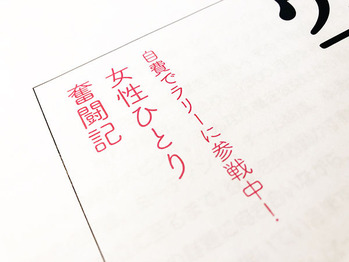 自費でラリーに参戦中！
女性ひとり
奮闘記